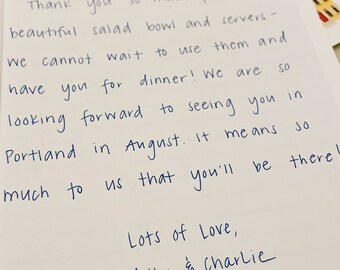 Thank you so
beautiful salad bowl and servers–
we cannot wait to use them and
have you for dinner! We are so
looking forward to seeing you in
Portland in August. It means so
much to us that you'll be there!
Lots of Love,
& Charlie